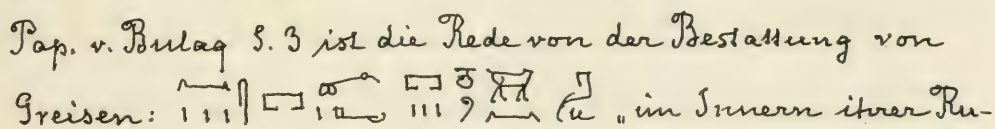 Pap. v. Bulaq S. 3 ist die Rede von der Bestattung von
Greisen: „im Innern ihrer Ru-